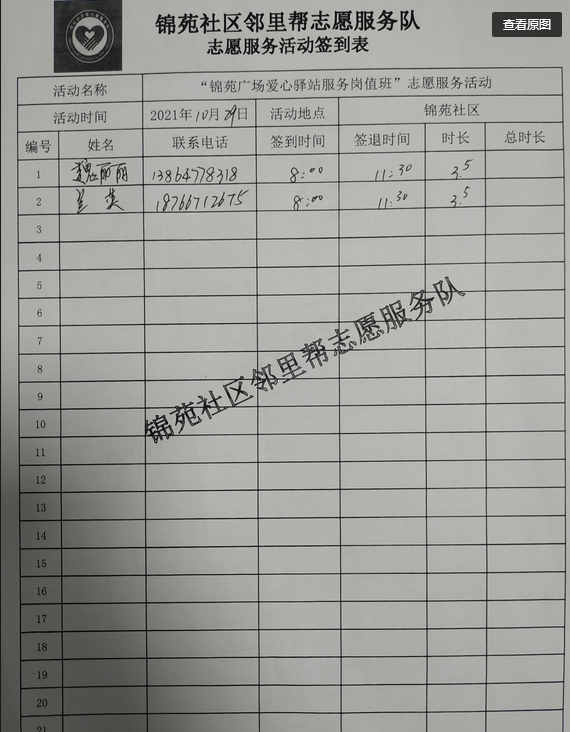 查看原图
锦苑社区邻里帮志愿服务队
志愿服务活动签到表
活动名称 “锦苑广场爱心驿站服务岗值班”志愿服务活动
活动时间 2021年10月29日 活动地点 锦苑社区
编号 姓名 联系电话 签到时间 签退时间 时长 总时长
1 魏丽丽 13864778318 8:00 11:30 3.5
2 兰英 18766712675 8:00 11:30 3.5
3
4
5
6
7
8
9
10
11
12
13
14
15
16
17
18
19
20
21
锦苑社区邻里帮志愿服务队